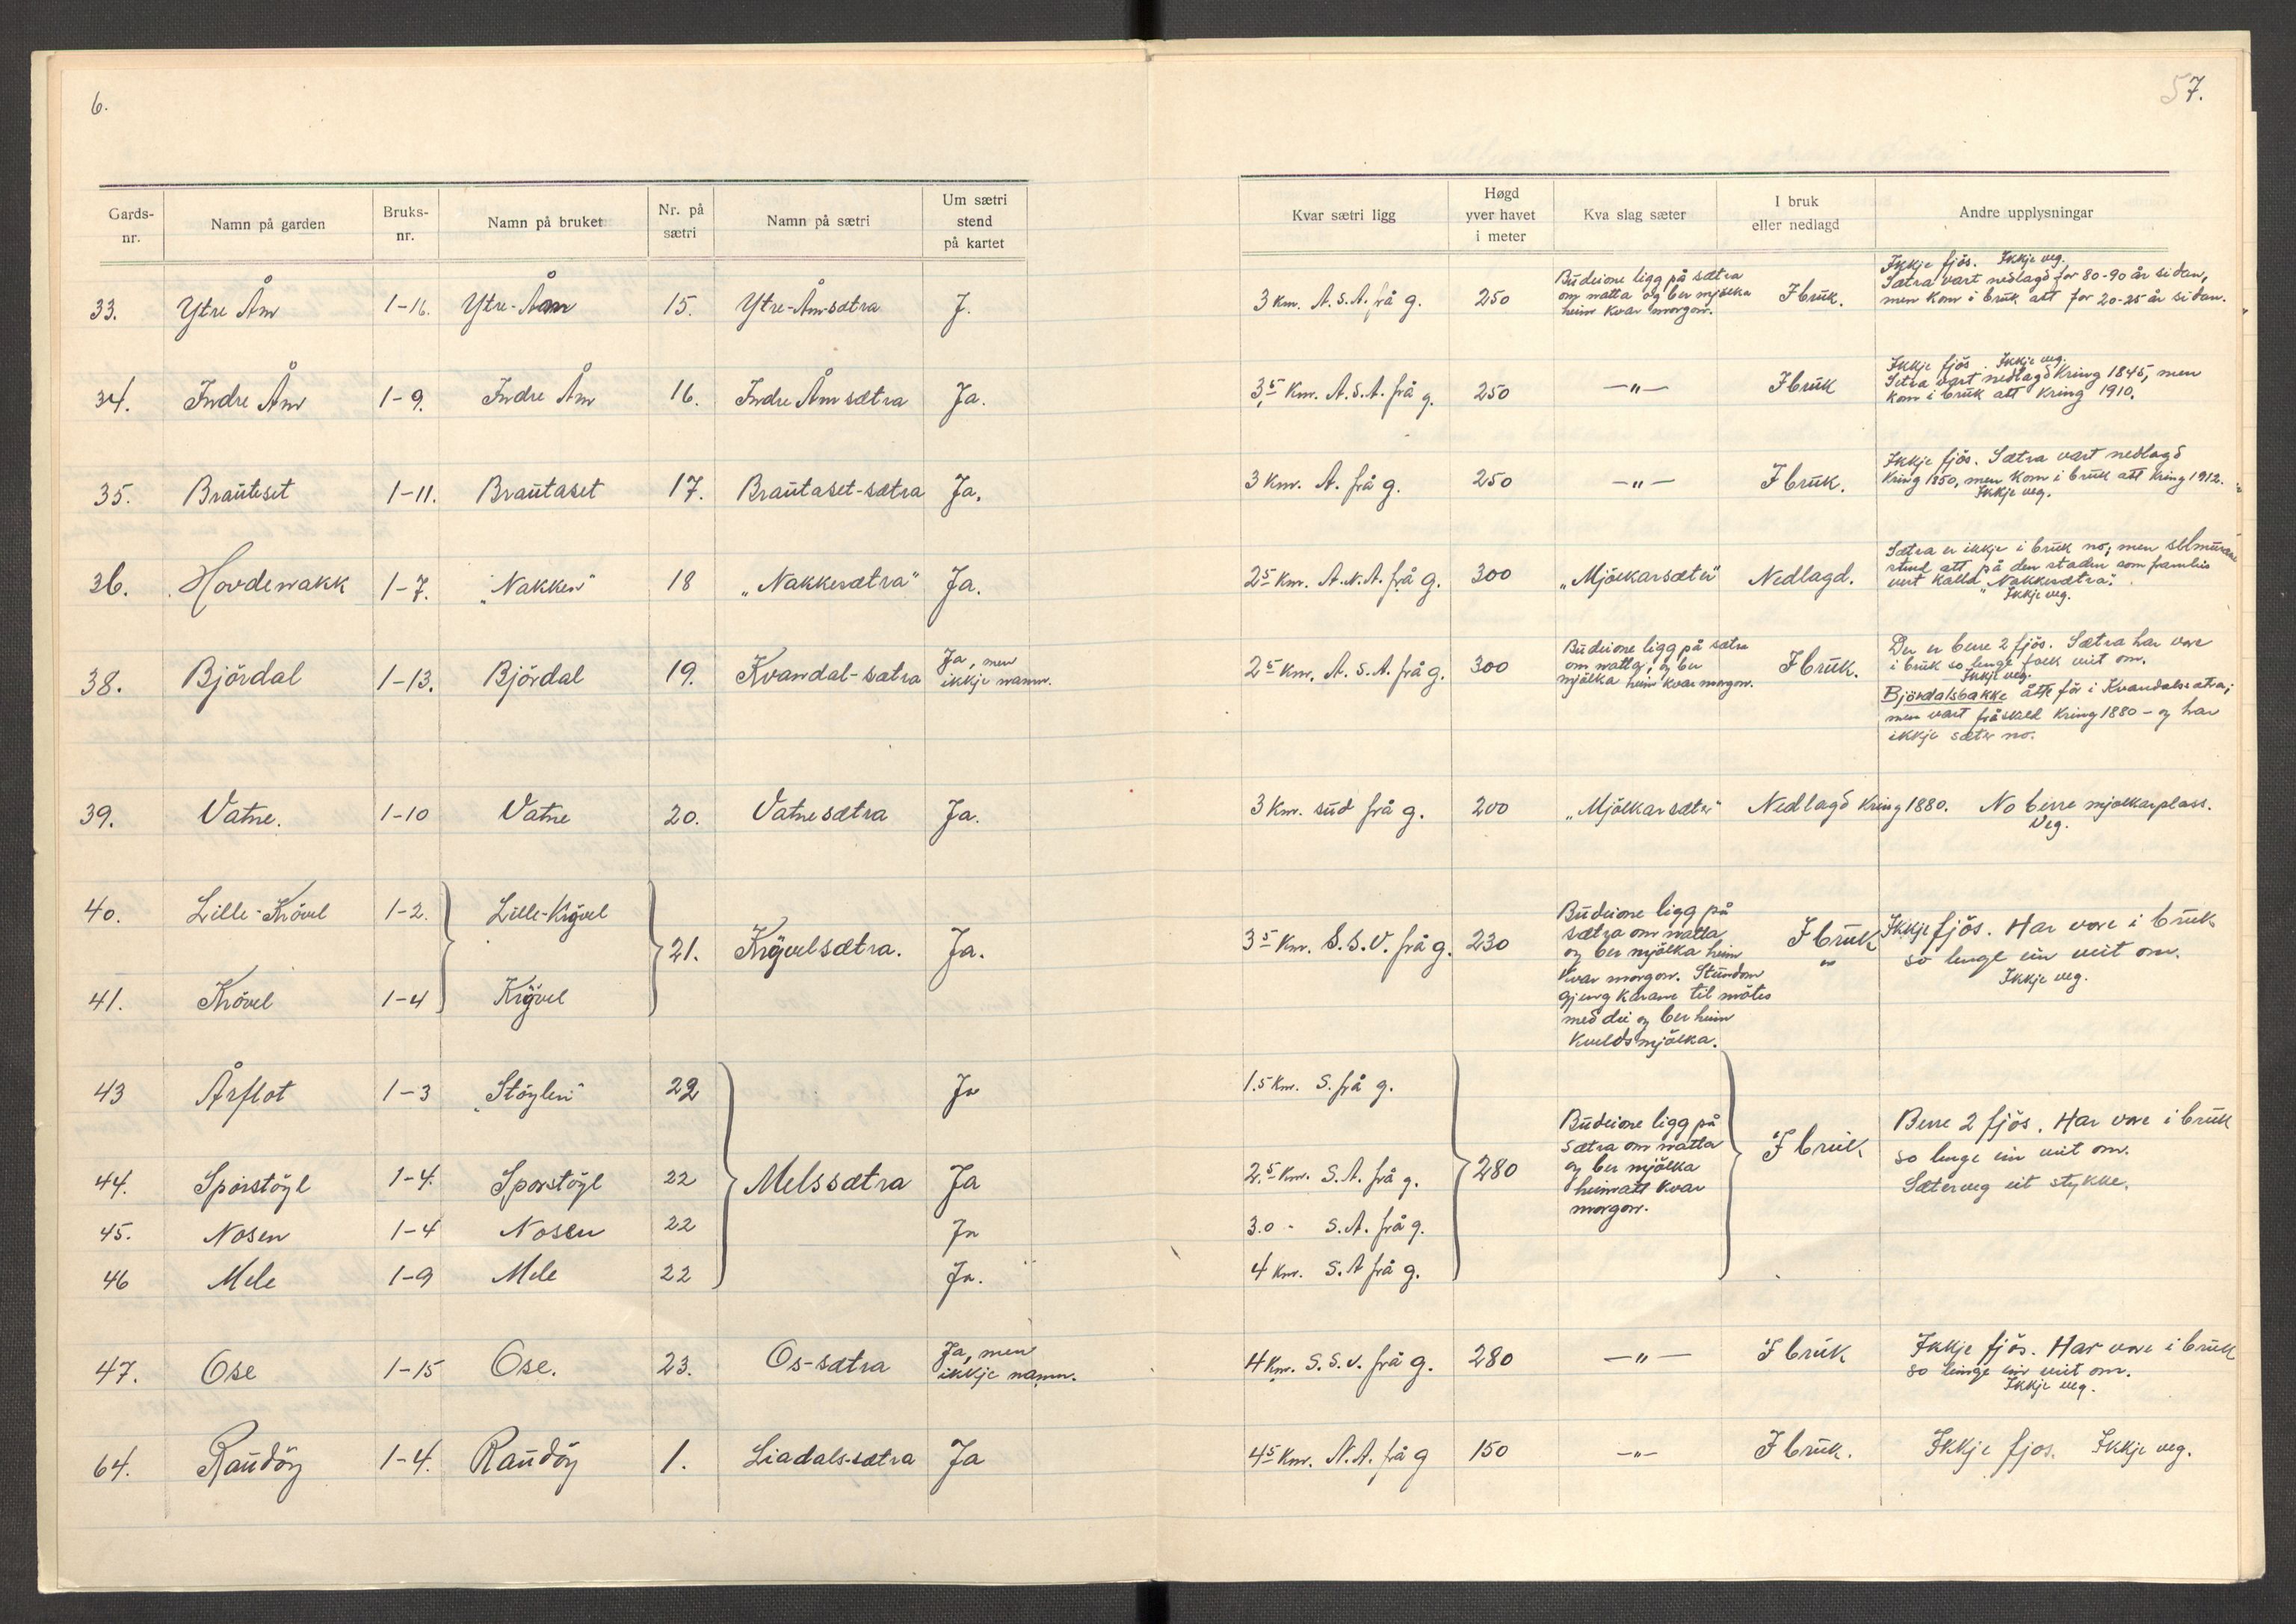 6.
57.
Gards-nr. Namn på garden Bruks-nr. Namn på bruket Nr. på sætri Namn på sætri Um sætri stend på kartet Kvar sætri ligg Høgd yver havet i meter Kva slag sæter I bruk eller nedlagd Andre upplysningar
33. Ytre Åm 1-16. Ytre-Åm 15. Ytre-Åm-sætra J. 3 km. A.S.A. frå g. 250
Budeione ligg på sætra
om natta og ber mjölka
heim kvar morgon.
I bruk.
Ikkje fjös. Ikkje veg.
Sætra vart nedlagd for 80-90 år sidan,
men kom i bruk att for 20-25 år sidan.
34. Indre Åm 1-9. Indre Åm 16. Indre Åm sætra Ja. 3,5 km. A.S.A. frå g. 250 —"— I bruk
Ikkje fjös. Ikkje veg.
Setra vart nedlagd kring 1845, men
kom i bruk att kring 1910.
35. Brauteset 1-11. Brautaset 17. Brautaset-sætra Ja. 3 km. A. frå g. 250 —"— I bruk.
Ikkje fjös. Sætra vart nedlagd
kring 1850, men kom i bruk att kring 1912.
Ikkje veg.
36. Hovdenakk 1-7. "Nakken" 18 "Nakkesætra" Ja. 2,5 km. A.N.A. frå g. 300 "Mjölkarsæter" Nedlagd.
Sætra er ikkje i bruk no; men selmurane
stend att på den staden som framleis
vert kalla "Nakkesætra".
Ikkje veg.
38. Björdal 1-13. Björdal 19. Kvandal-sætra Ja, men ikkje namn. 2,5 km. A.S.A. frå g. 300
Budeione ligg på sætra
om natta, og ber
mjölka heim kvar morgon.
I bruk.
Der er berre 2 fjös. Sætra har vore
i bruk so lenge folk veit om.
Ikkje veg.
Björdalsbakke åtte för i Kvandalssætra;
men vart fråskild kring 1880 - og har
ikkje sæter no.
39. Vatne. 1-10 Vatne 20. Vatnesætra Ja. 3 km. sud frå g. 200 "Mjölkarsæter" Nedlagd kring 1880. No berre mjölkarplass.
Veg.
40. Lille-Krövel 1-2. Lille-Krövel
21. Krövelsætra. Ja. 3,5 km. S.S.V. frå g. 230
41. Krövel 1-4 Krövel
Budeione ligg på
sætra om natta
og ber mjölka heim
kvar morgon. Stundom
gjeng karane til mötes
med dei og ber heim
kveldsmjölka.
I bruk
"
Ikkje fjös. Har vore i bruk
so lenge ein veit om.
Ikkje veg.
43 Årflot 1-3 "Stöylen" 22 Ja 1.5 km. S. frå g.
44. Sporstöyl 1-4. Sporstöyl 22 Melssætra Ja 2,5 km. S.A. frå g. 280
45. Nosen 1-4 Nosen 22 Ja 3.0 - S.A. frå g.
46 Mele 1-9 Mele 22 Ja. 4 km. S.A frå g.
Budeione ligg på
sætra om natta
og ber mjölka
heimatt kvar
morgon.
I bruk
Berre 2 fjös. Har vore i bruk
so lenge ein veit om.
Sæterveg eit stykke.
47. Ose 1-15 Ose. 23. Os-sætra Ja, men ikkje namn. 4 km. S.S.V. frå g. 280 —"— I bruk
Ikkje fjös. Har vore i bruk
so lenge ein veit om.
Ikkje veg.
64. Raudöy 1-4. Raudöy 1. Liadals-sætra Ja 4,5 km. N.A. frå g 150 —"— I bruk. Ikkje fjos. Ikkje veg.